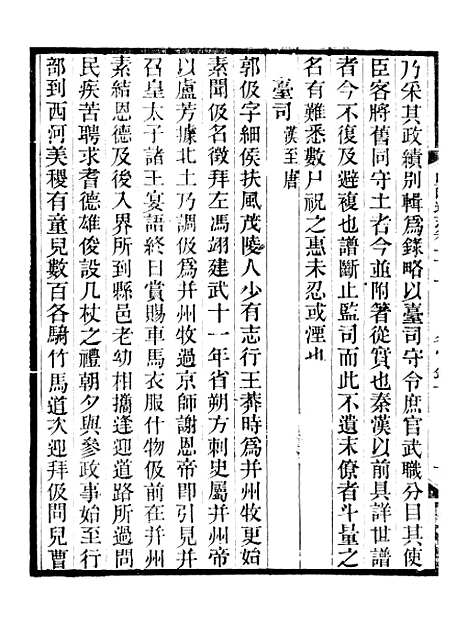 乃采其政績別輯爲錄略以臺司守令庶官武職分目其使
臣客將舊同守土者今並附著從實也秦漢以前具詳世譜
者今不復及避複也譜斷止監司而此不遺末僚者斗量之
名有難悉數尸祝之惠未忍或湮也
臺司漢至唐
郭伋字細侯扶風茂陵人少有志行王莽時爲并州牧更始
素聞伋名徵拜左馮翊建武十一年省朔方刺史屬并州帝
以盧芳據北土乃調伋爲并州牧過京師謝恩帝卽引見并
召皇太子諸王宴語終日賞賜車馬衣服什物伋前在并州
素結恩德及後入界所到縣邑老幼相攜逢迎道路所過問
民疾苦聘求耆德雄俊設几杖之禮朝夕與參政事始至行
部到西河美稷有童兒數百各騎竹馬道次迎拜伋問兒曹